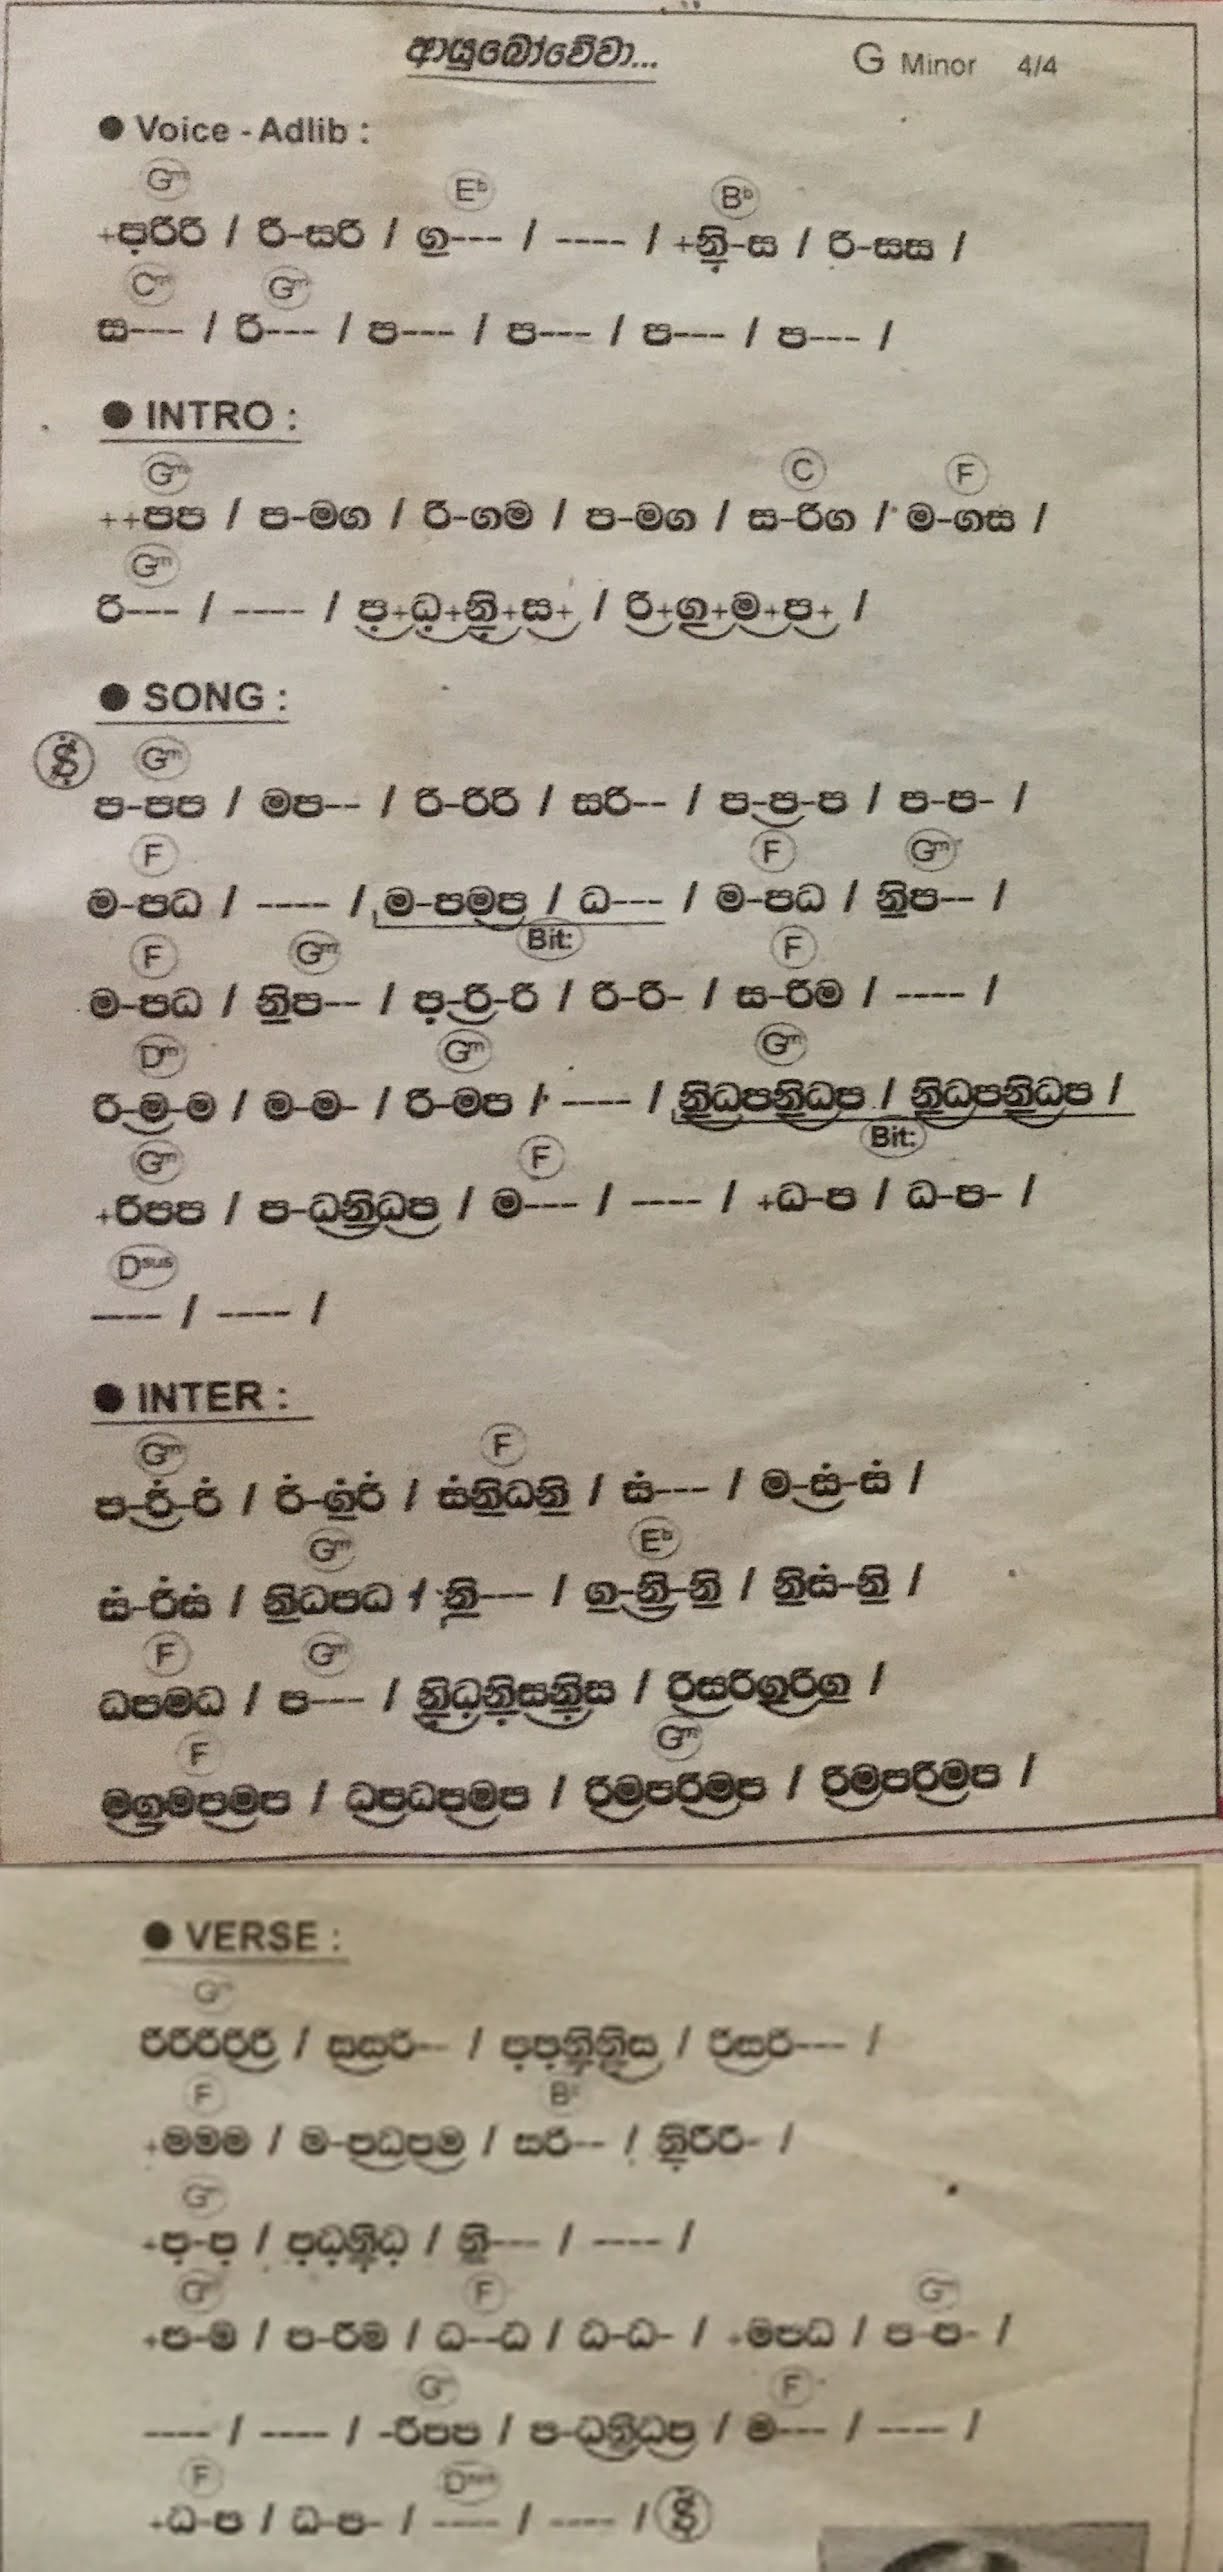 ආයුබෝවේවා... G Minor 4/4
● Voice - Adlib :
Gm Eb Bb
+ප̣රිරි / රි-සරි / ග̱--- / ---- / +නි̱̣-ස / රි-සස /
Cm Gm
ස--- / රි--- / ප--- / ප--- / ප--- / ප--- /
● INTRO :
Gm C F
++පප / ප-මග / රි-ගම / ප-මග / ස-රිග / ම-ගස /
Gm
රි--- / ---- / ප̣+ධ̣+නි̱̣+ස+ / රි+ග̱+ම+ප+ /
● SONG :
Gm
ප-පප / මප-- / රි-රිරි / සරි-- / ප-ප-ප / ප-ප- /
F F Gm
ම-පධ / ---- / ම-පමප / ධ--- / ම-පධ / නි̱ප-- /
Bit:
F Gm F
ම-පධ / නි̱ප-- / ප̣-රි-රි / රි-රි- / ස-රිම / ---- /
Dm Gm Gm
රි-ම-ම / ම-ම- / රි-මප / ---- / නි̱ධපනි̱ධප / නි̱ධපනි̱ධප /
Bit:
Gm F
+රිපප / ප-ධනි̱ධප / ම--- / ---- / +ධ-ප / ධ-ප- /
Dsus
---- / ---- /
● INTER :
Gm F
ප-රි̇-රි̇ / රි̇-ග̱̇රි̇ / ස̇නි̱ධනි̱ / ස̇--- / ම-ස̇-ස̇ /
Gm Eb
ස̇-රි̇ස̇ / නි̱ධපධ / නි̱--- / ග̱-නි̱-නි̱ / නි̱ස̇-නි̱ /
F Gm
ධපමධ / ප--- / නි̱̣ධ̣නි̱̣සනි̱̣ස / රිසරිග̱රිග̱ /
F Gm
මග̱මපමප / ධපධපමප / රිමපරිමප / රිමපරිමප /
● VERSE :
Gm
රිරිරිරිරි / සසරි-- / ප̣ප̣නි̱̣නි̱̣ස / රිසරි--- /
F Bb
+මමම / ම-පධපම / සරි-- / නි̱̣රිරි- /
Gm
+ප̣-ප̣ / ප̣ධ̣නි̱̣ධ̣ / නි̱--- / ---- /
Gm F Gm
+ප-ම / ප-රිම / ධ--ධ / ධ-ධ- / +මපධ / ප-ප- /
Gm F
---- / ---- / -රිපප / ප-ධනි̱ධප / ම--- / ---- /
F Dsus
+ධ-ප / ධ-ප- / ---- / ---- /